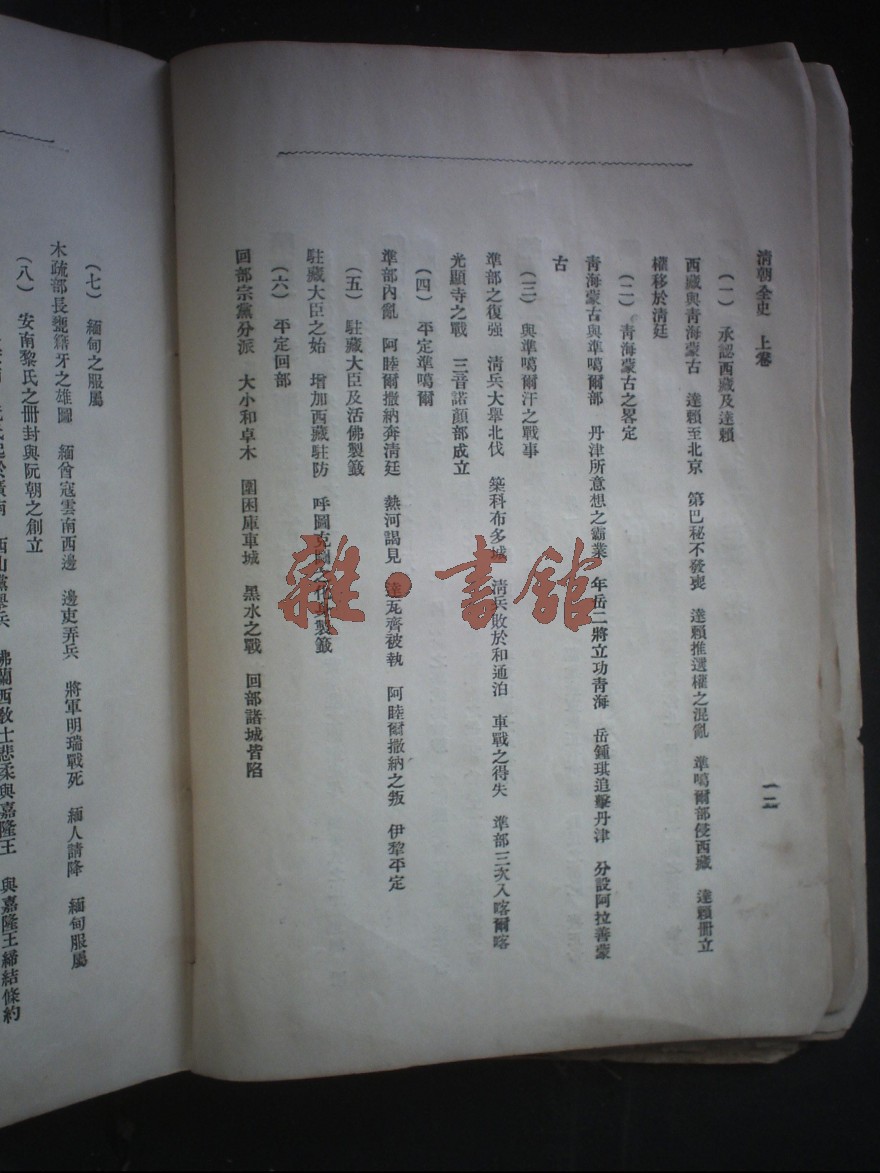 清朝全史 上卷
一二
（一） 承認西藏及達賴
西藏與青海蒙古 達賴至北京 第巴秘不發喪 達賴推選權之混亂 準噶爾部侵西藏 達賴冊立
權移於清廷
（二） 青海蒙古之畧定
青海蒙古與準噶爾部 丹津所意想之霸業 年岳二將立功青海 岳鍾琪追擊丹津 分設阿拉善蒙
古
（三） 與準噶爾汗之戰事
準部之復强 清兵大舉北伐 築科布多城 清兵敗於和通泊 車戰之得失 準部三次入喀爾喀
光顯寺之戰 三音諾顏部成立
（四） 平定準噶爾
準部內亂 阿睦爾撒納奔清廷 熱河謁見 達瓦齊被執 阿睦爾撒納之叛 伊犂平定
（五） 駐藏大臣及活佛製籤
駐藏大臣之始 增加西藏駐防 呼圖克圖之化身製籤
（六） 平定回部
回部宗黨分派 大小和卓木 圍困庫車城 黑水之戰 回部諸城皆陷
（七） 緬甸之服屬
木疏部長甕籍牙之雄圖 緬酋寇雲南西邊 邊吏弄兵 將軍明瑞戰死 緬人請降 緬甸服屬
（八） 安南黎氏之冊封與阮朝之創立
西山黨舉兵 佛蘭西敎士悲柔與嘉隆王 與嘉隆王締結條約
雜·書館